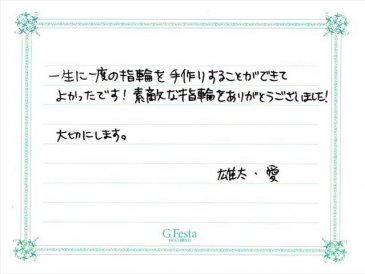 一生に一度の指輪を手作りすることができて
よかったです！素敵な指輪をありがとうございました！
大切にします。
雄太・愛
G.Festa